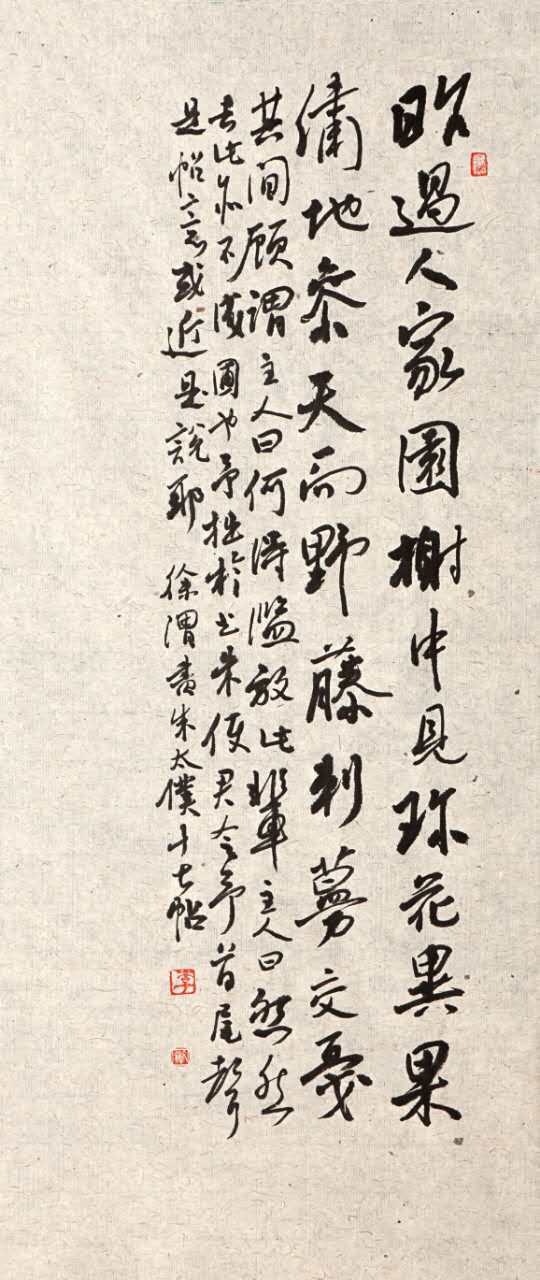 昨過人家園榭中見珍花異果
繡地參天而野藤刺蔓交戛
其間顧謂主人曰何得濫放此輩主人曰然然
去此亦不成圃也予拙於書朱使君令予首尾
是帖意或近是說耶 徐渭書朱太僕十七帖
李